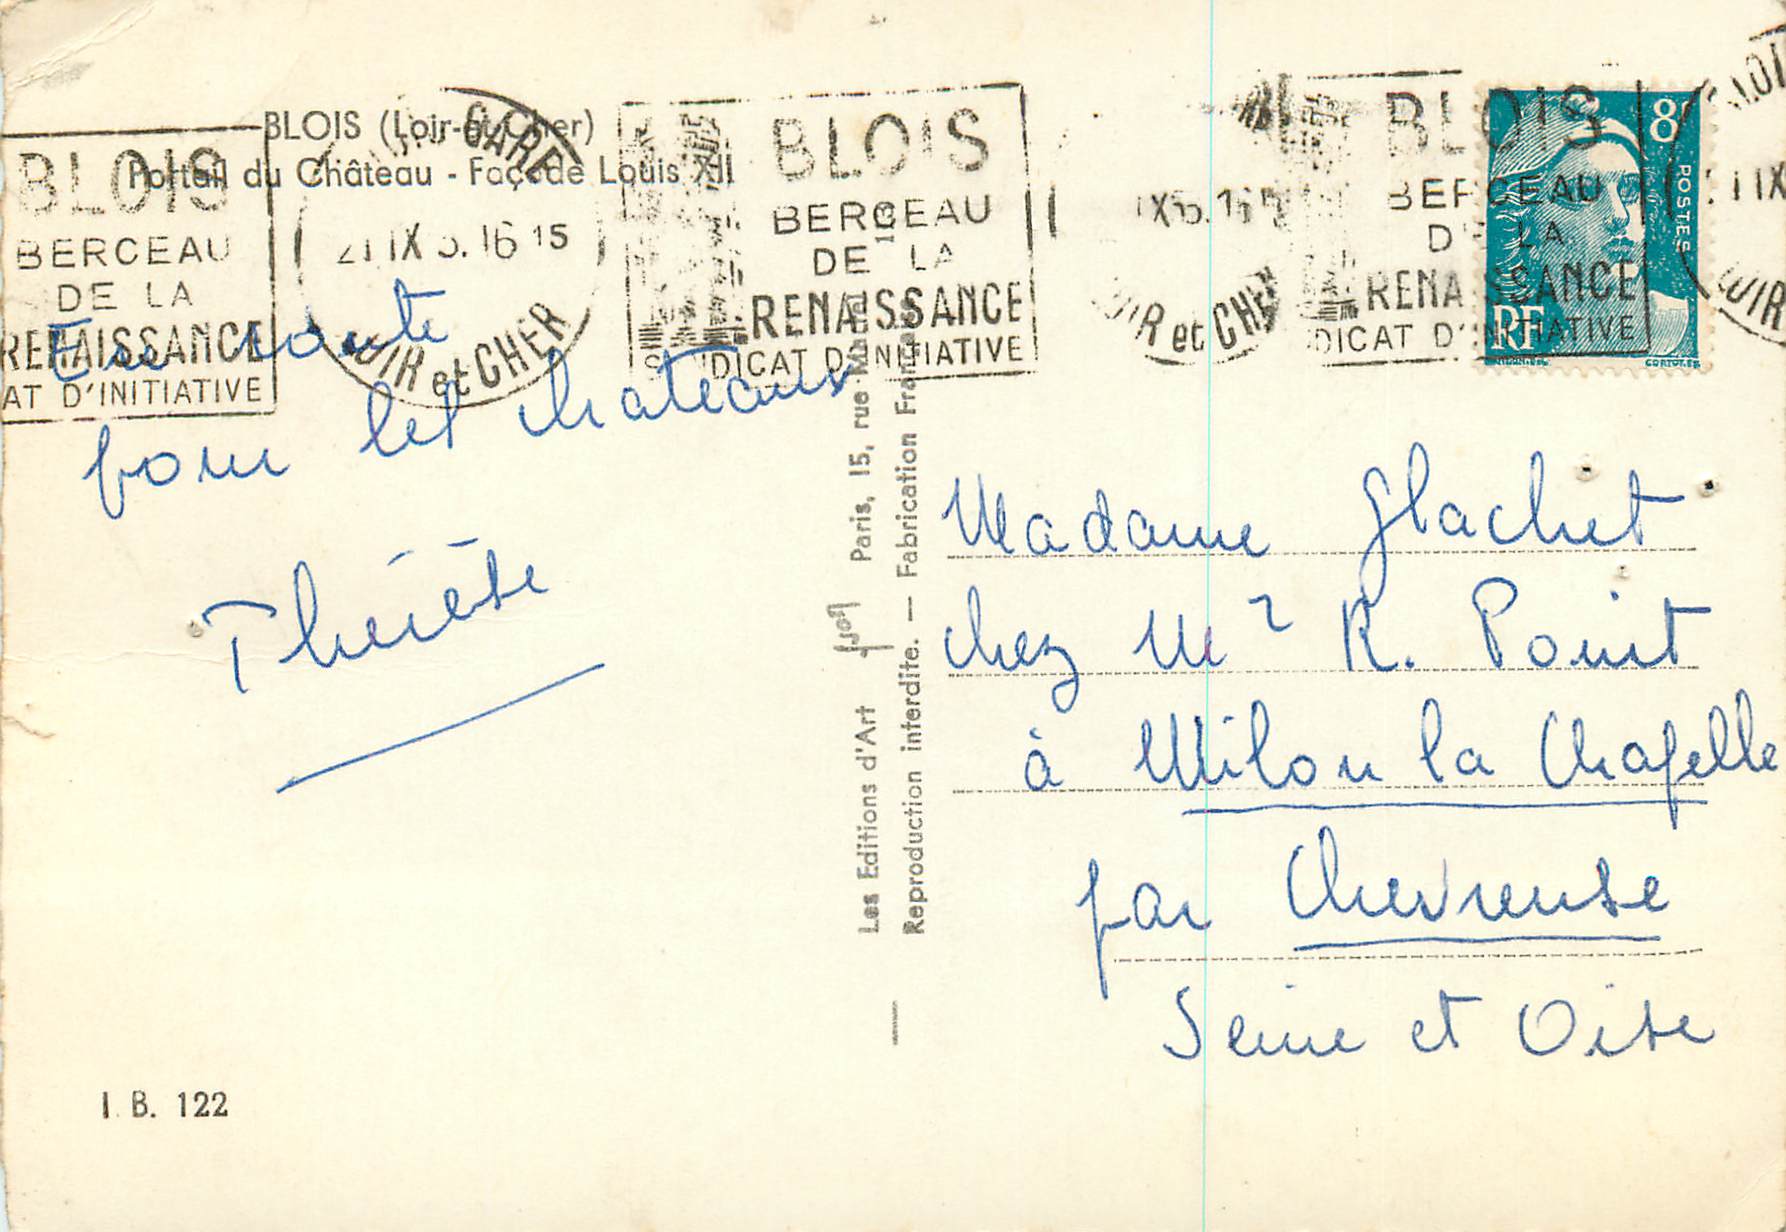 BLOIS (Loir-et-Cher)
Portail du Château - Façade Louis XII
BLOIS
BERCEAU
DE LA
RENAISSANCE
AT D'INITIATIVE
GARE
21 IX 5. 16 15
LOIR et CHER
BLOIS
BERCEAU
DE LA
RENAISSANCE
SYNDICAT D'INITIATIVE
IX 16 15
LOIR et CHER
BLOIS
BERCEAU
DE LA
RENAISSANCE
DICAT D'INITIATIVE
8F
POSTES
RF
GANDON, DEL.
CORTOT, SC.
21 IX
LOIR
En route
pour les chateaux
Thérèse
Les Editions d'Art Yvon Paris, 15, rue
Reproduction interdite. — Fabrication Française
Madame Glachet
chez Mr R. Point
à Milon la Chapelle
par Chevreuse
Seine et Oise
I. B. 122